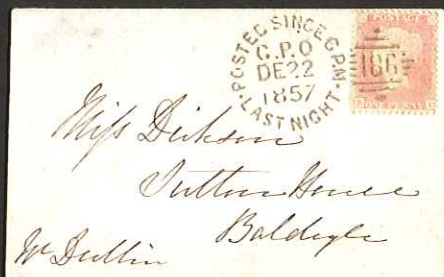 POSTED SINCE 6 P.M
G.P.O
DE 22
1857
· LAST NIGHT ·
POSTAGE
186
ONE PENNY
Miss Dickson
Sutton House
Baldoyle
Nr Dublin